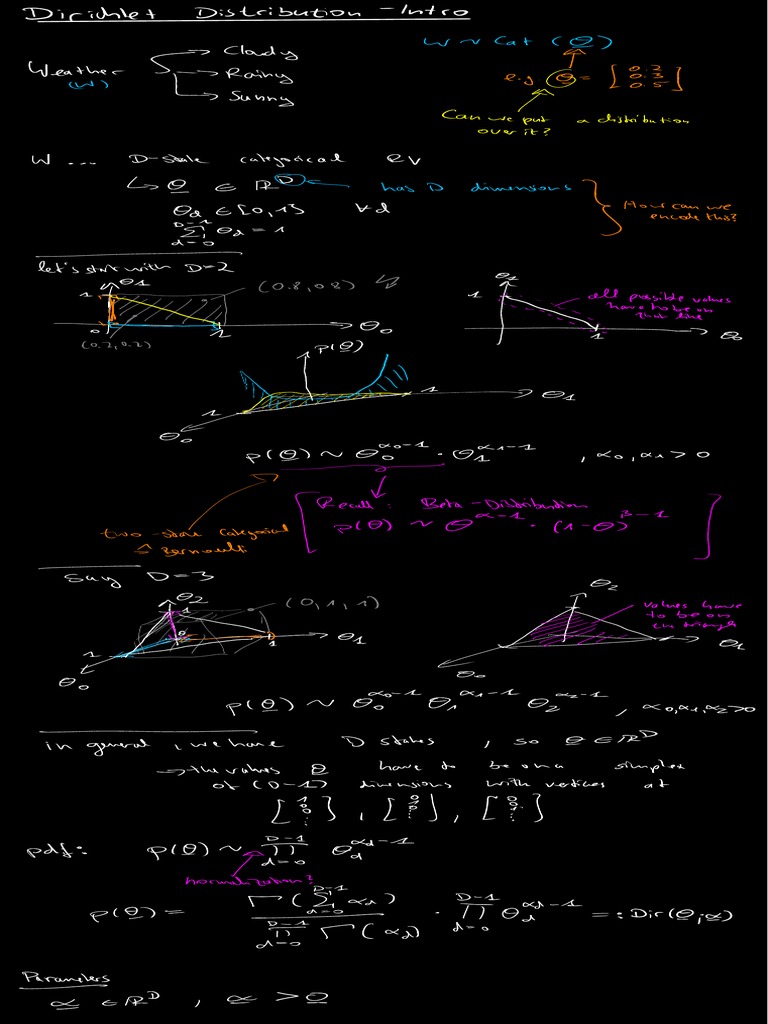 Dirichlet Distribution - Intro
Weather
(W)
Cloudy
Rainy
Sunny
W ~ Cat (θ)
e.g. θ = [0.2 0.3 0.5]
Can we put a distribution
over it?
W ... D-state categorical RV
↳ θ ∈ ℝ^D ← has D dimensions
θ_d ∈ [0,1] ∀d
∑_{d=0}^{D-1} θ_d = 1
How can we
encode this?
let's start with D=2
θ1
1
(0.8, 0.8)
0
1
θ0
(0.2, 0.2)
θ1
1
all possible values
have to be on
that line
1
θ0
p(θ)
1
1
θ1
θ0
p(θ) ~ θ_0^{α_0-1} · θ_1^{α_1-1} , α0, α1 > 0
two-state Categorical
≙ Bernoulli
Recall: Beta-Distribution
p(θ) ~ θ^{α-1} · (1-θ)^{β-1}
Say D=3
θ2
1
(0, 1, 1)
0
1
θ1
1
θ0
θ2
values have
to be on
the triangle
θ1
θ0
p(θ) ~ θ_0^{α_0-1} θ_1^{α_1-1} θ_2^{α_2-1} , α0, α1, α2 > 0
in general, we have D states, so θ ∈ ℝ^D
→ the values θ have to be on a simplex
of (D-1) dimensions with vertices at
[1 0 0 ⋮], [0 1 0 ⋮], [0 0 1 ⋮]
pdf: p(θ) ~ ∏_{d=0}^{D-1} θ_d^{α_d-1}
normalization?
p(θ) = Γ(∑_{d=0}^{D-1} α_d) / ∏_{d=0}^{D-1} Γ(α_d) · ∏_{d=0}^{D-1} θ_d^{α_d-1} =: Dir(θ; α)
Parameters
α ∈ ℝ^D , α > 0